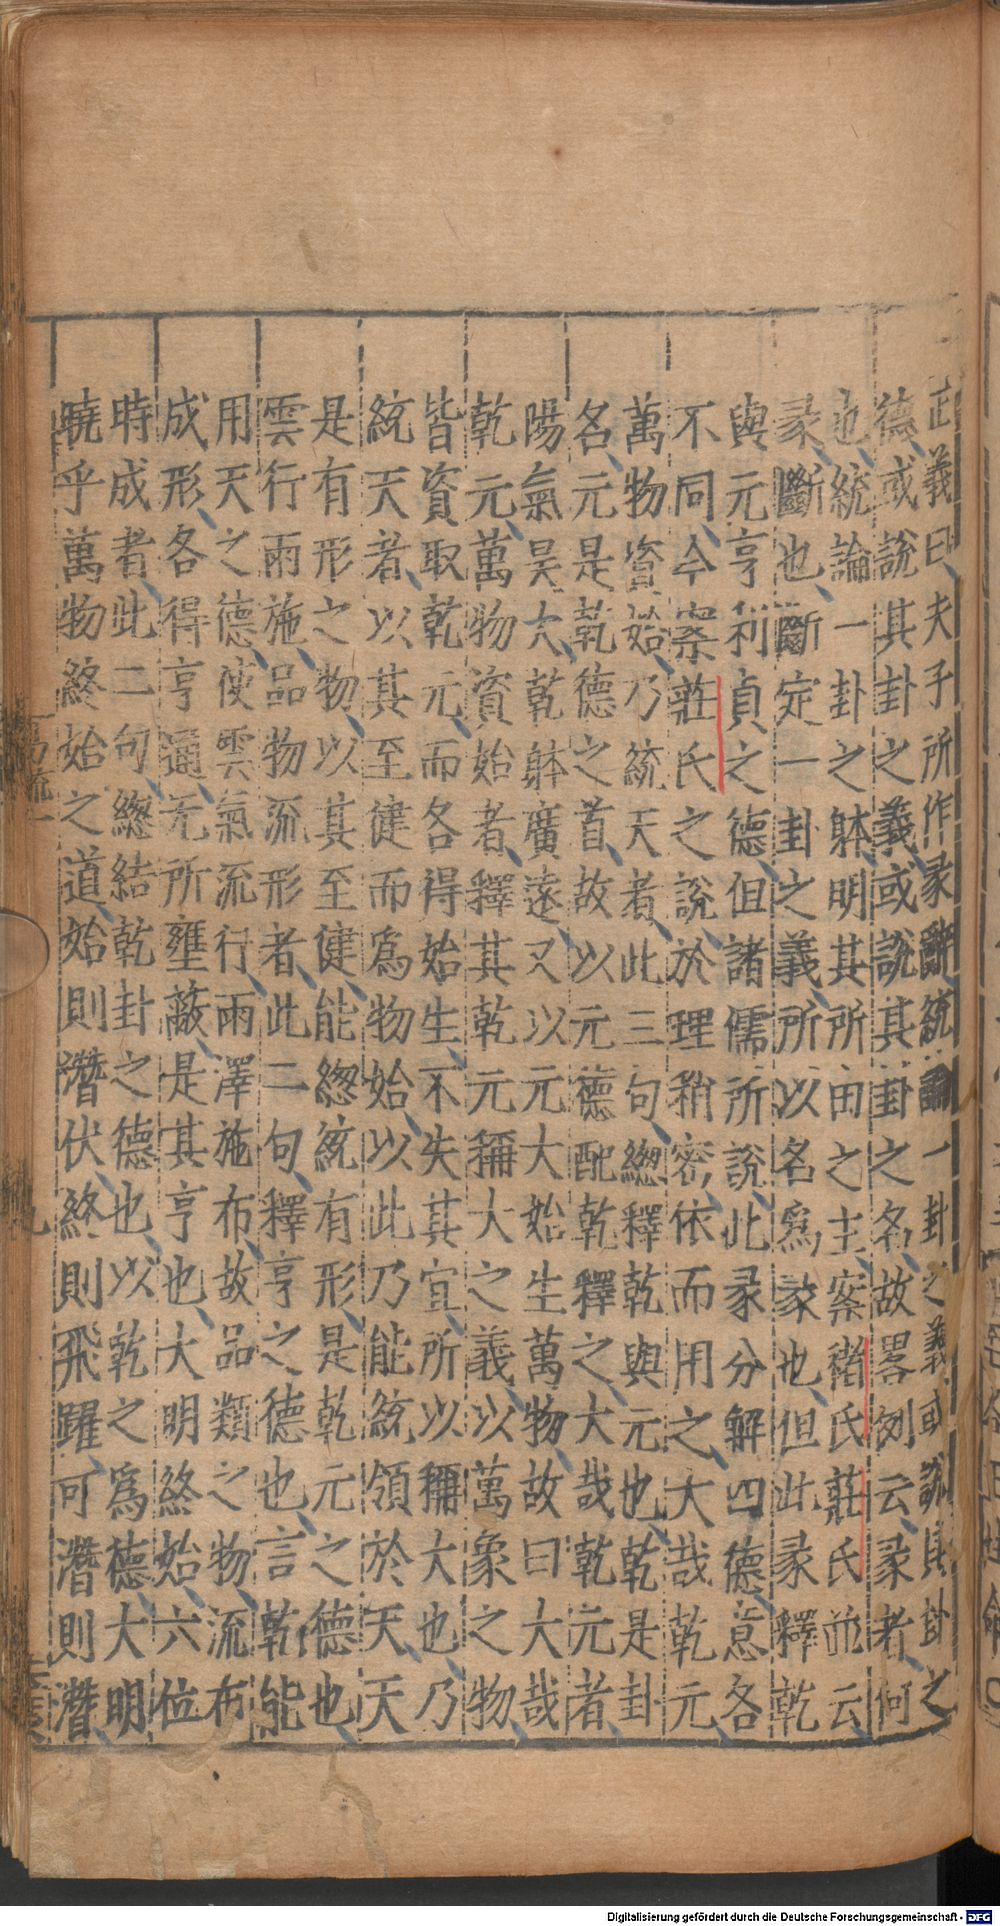 正義曰夫子所作彖辭統論一卦之義或說其卦之
德或說其卦之義或說其卦之名故畧例云彖者何
也統論一卦之躰明其所由之主案褚氏莊氏並云
彖斷也斷定一卦之義所以名爲彖也但此彖釋乾
與元亨利貞之德但諸儒所說此彖分解四德意各
不同今案莊氏之說於理稍密依而用之大哉乾元
萬物資始乃統天者此三句緫釋乾與元也乾是卦
名元是乾德之首故以元德配乾釋之大哉乾元者
陽氣昊大乾躰廣遠又以元大始生萬物故曰大哉
乾元萬物資始者釋其乾元稱大之義以萬象之物
皆資取乾元而各得始生不失其宜所以稱大也乃
統天者以其至健而爲物始以此乃能統領於天天
是有形之物以其至健能緫統有形是乾元之德也
雲行雨施品物流形者此二句釋亨之德也言乾能
用天之德使雲氣流行雨澤施布故品類之物流布
成形各得亨通无所壅蔽是其亨也大明終始六位
時成者此二句緫結乾卦之德也以乾之爲德大明
曉乎萬物終始之道始則潛伏終則飛躍可潛則潛
Digitalisierung gefördert durch die Deutsche Forschungsgemeinschaft - DFG